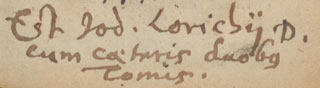 Est Jod. Lorichij D.
cum cæteris duobꝫ
Tomis.